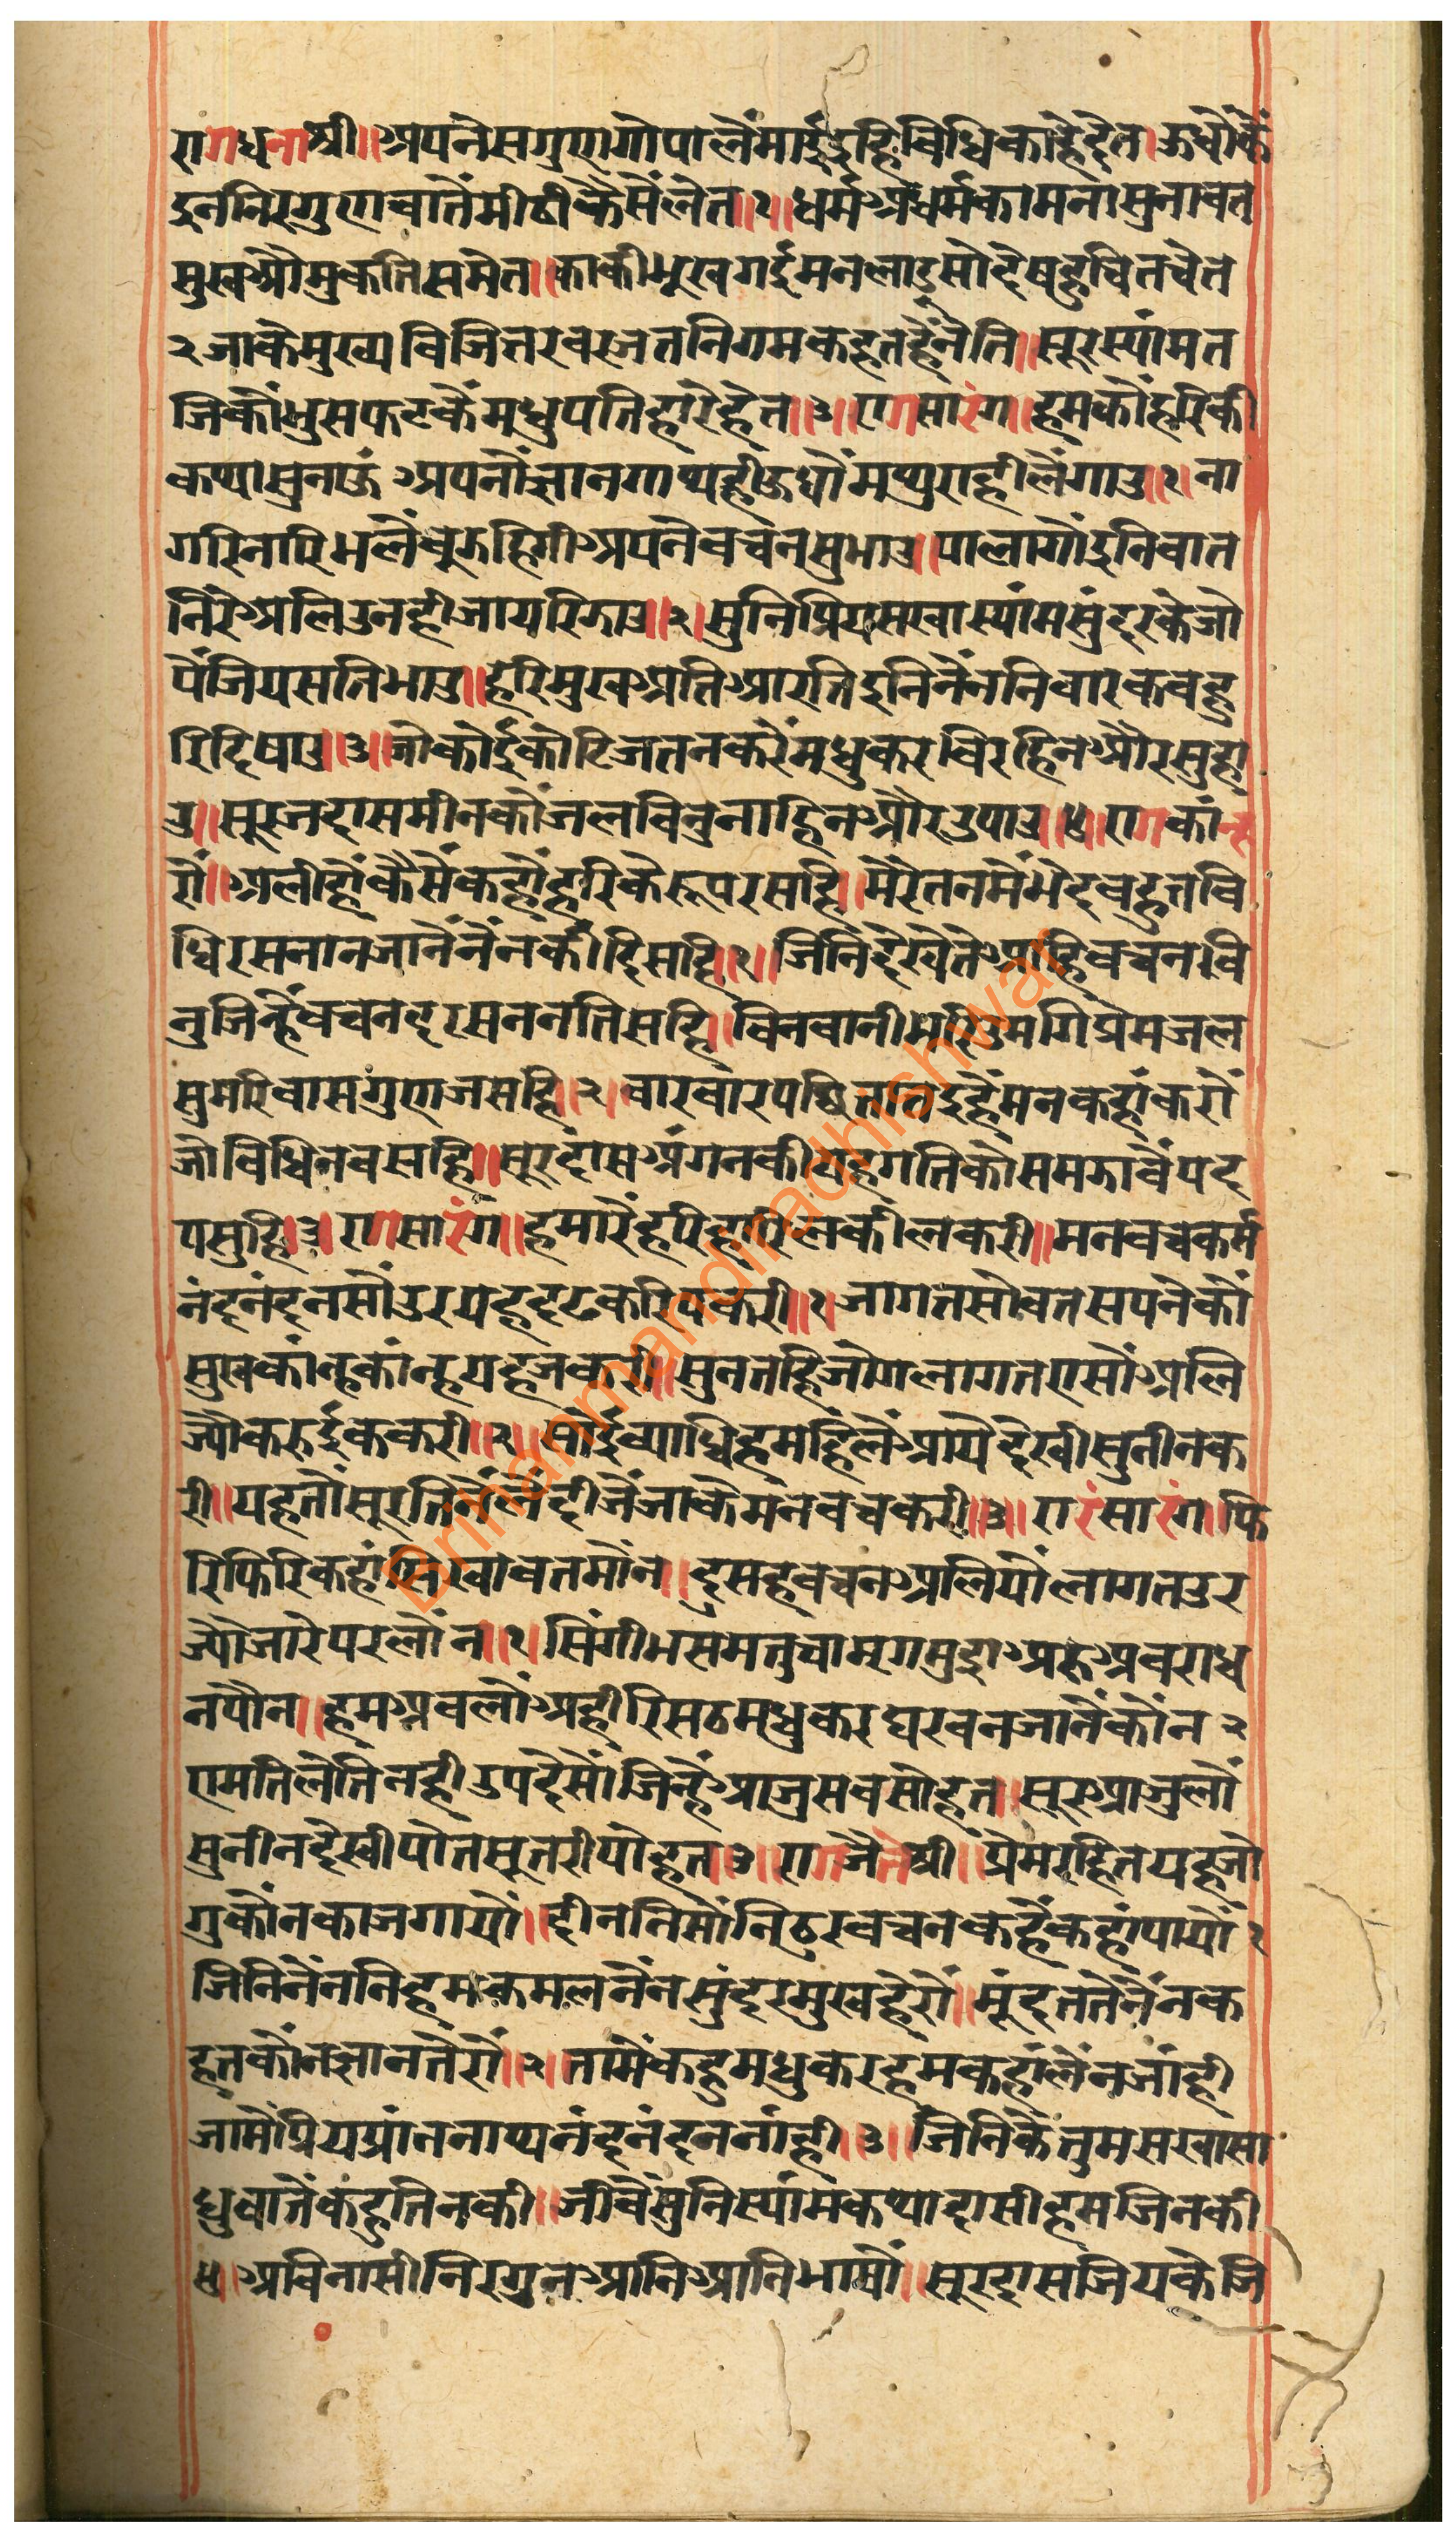 रागधनाश्री॥अपनेसगुणगोपालैंमाईइहिविधिकाहैदेत।ऊधौकैं
इननिरगुणबातैंमीठीकैसैंलेत॥१॥धर्मअधर्मकामनासुनावत
सुखऔमुकतिसमेत।काकीभूखगईमनलाडूसोदेषहुचितचेत
२जाकैमुख्यविजितरवरजतनिगमकहतहैंनेति॥सूरस्यांमत
जिकोंभुसफटकैमधुपतिहारेहेत॥३॥रागसारंग॥हमकौंहरिकी
कथासुनाऊं अपनौंज्ञानगाथहीऊधौंमथुराहीलैगाउ॥१।ना
गरिनारिभलैंबुझहिगीअपनेबचनसुभाउ।पालागौंइनिबात
निरेअलिउनहीजायरिझाउ॥२।सुनिप्रियसखास्यांमसुंदरकेजो
पैंजियसतिभाउ॥हरिमुखअतिआरतिइनिनैंननिबारकबहु
रिदिषाउ॥३॥जोकोईकोटिजतनकरैंमधुकरबिरहिनऔरसुहा
उ॥सूरजदासमीनकौंजलबिनुनाहिनऔरउपाउ॥४॥रागकांन्ह
रौं॥अलीहौंकैसैंकहौंहरिकेरूपरसहि।मेरेतनमैंभेदबहुतबि
धिरसनानजानैंनैंनकीदिसहि॥१॥जिनिदेखेतेआहिबचनबि
नुजिन्हैंबचनदरसननतिसहि॥बिनबानीभरिउमगिप्रेमजल
सुमरिवासगुणजसहि।२।बारबारपछितातिइहैंमनकहांकरौं
जोबिधिनबसहि॥सूरदासअंगनकीयहगतिकोसमझावैंपद
पसुहि।३।रागसारंग॥हमारैंहरिहारिलकीलकरी॥मनबचकर्म
नंदनंदनसौंउरयहदृढकरिपकरी॥१।जागतसोवतसपनेकौं
सुखकांन्हकांन्हयहजकरी॥सुनतहिजोगलागतएसोंअलि
ज्यौंकरुईककरी॥२॥सोईब्याधिहमहिंलैंआयेदेखीसुनीनक
री॥यहतौंसूरतिनैंलैंदीजैंजाकेमनबचकरी॥३॥रारंसारंग।फि
रिफिरिकहांसिखावतमौंन॥दुसहबचनअलियौंलागतउर
ज्यौंजारेपरलौंन॥१।सिंगीभसमतुचामृगमुद्राअरुअबराध
नपौन॥हमअबलौंअहीरिसठमधुकरघरबनजानैंकौंन २
एमतिलेतिनहीउपदेसौंजिन्हैंआजुसबसोहत।सूरआजुलौं
सुनीनदेखीपोतसूतरीपोहत।३॥रागजैतश्री॥प्रेमरहितयहजो
गुकौंनकाजगायौं॥दीननिसौंनिठुरबचनकहैंकहांपायौं१
जिनिनैंननिहमकमलनैंनसुंदरमुखहेरौं॥मूंदततेनैंनक
हतकौंनज्ञानतेरौं॥२।तामैंकहुमधुकरहमकहांलैंनजांही
जामेंप्रियप्रांननाथनंदनंदननांही।३॥जिनिकेतुमसखासा
धुबातैंकहुतिनकी॥जीवैंसुनिस्यांमकथादासीहमजिनकी
४।अबिनासीनिरगुनआनिआनिभाषौं।सूरदासजियकेजि